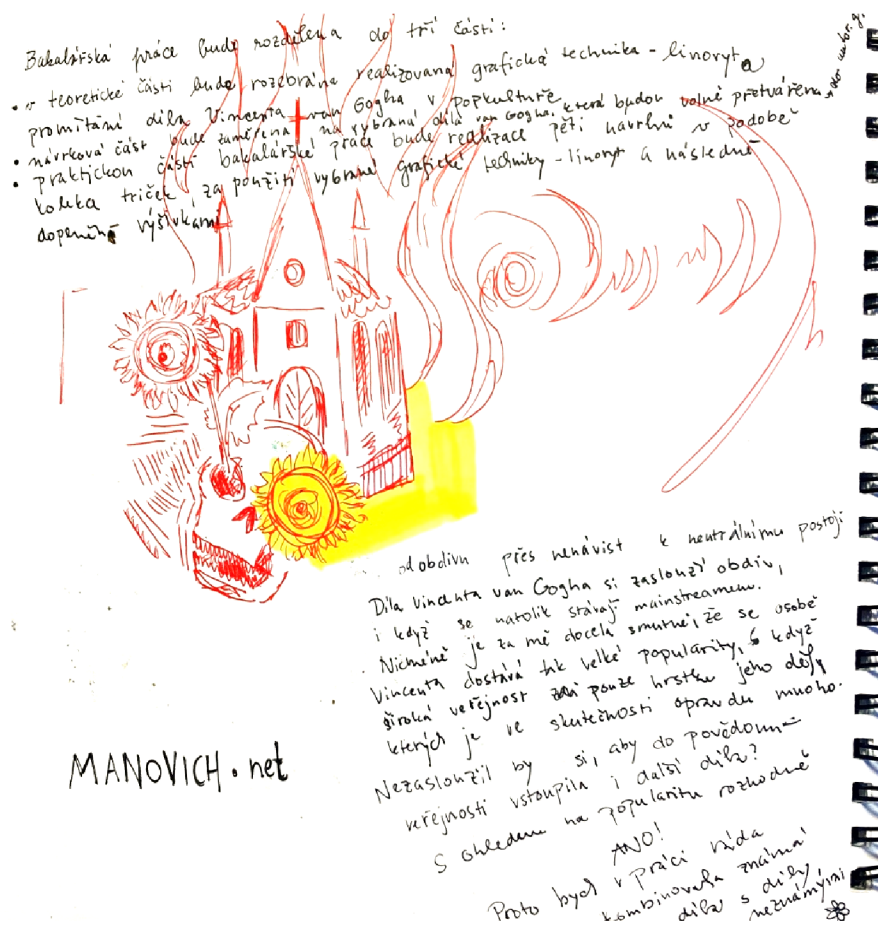 Bakalářská práce bude rozdělena do tří částí:
• v teoretické části bude rozebrána realizovaná grafická technika - linoryt a
promítání díla Vincenta van Gogha v popkultuře
• návrková část bude zaměřena na vybraná díla van Gogha, která budou volně přetvářena
• praktickou částí bakalářské práce bude realizace pěti návrhů v podobě
kolekce triček, za použití vybrané grafické techniky - linoryt a následně
doplněné výšivkami
... od obdivu přes nenávist k neutrálnímu postoji
Díla Vincenta van Gogha si zaslouží obdiv,
i když se natolik stávají mainstreamem.
Nicméně je za mě docela smutné, že se osobě
Vincenta dostává tak velké popularity, když
široká veřejnost zná pouze hrstku jeho děl,
kterých je ve skutečnosti opravdu mnoho.
Nezasloužil by si, aby do povědomí
veřejnosti vstoupila i další díla?
S ohledem na popularitu rozhodně
ANO!
Proto bych v práci ráda
kombinovala známá
díla s díly
neznámými
MANOVICH.net